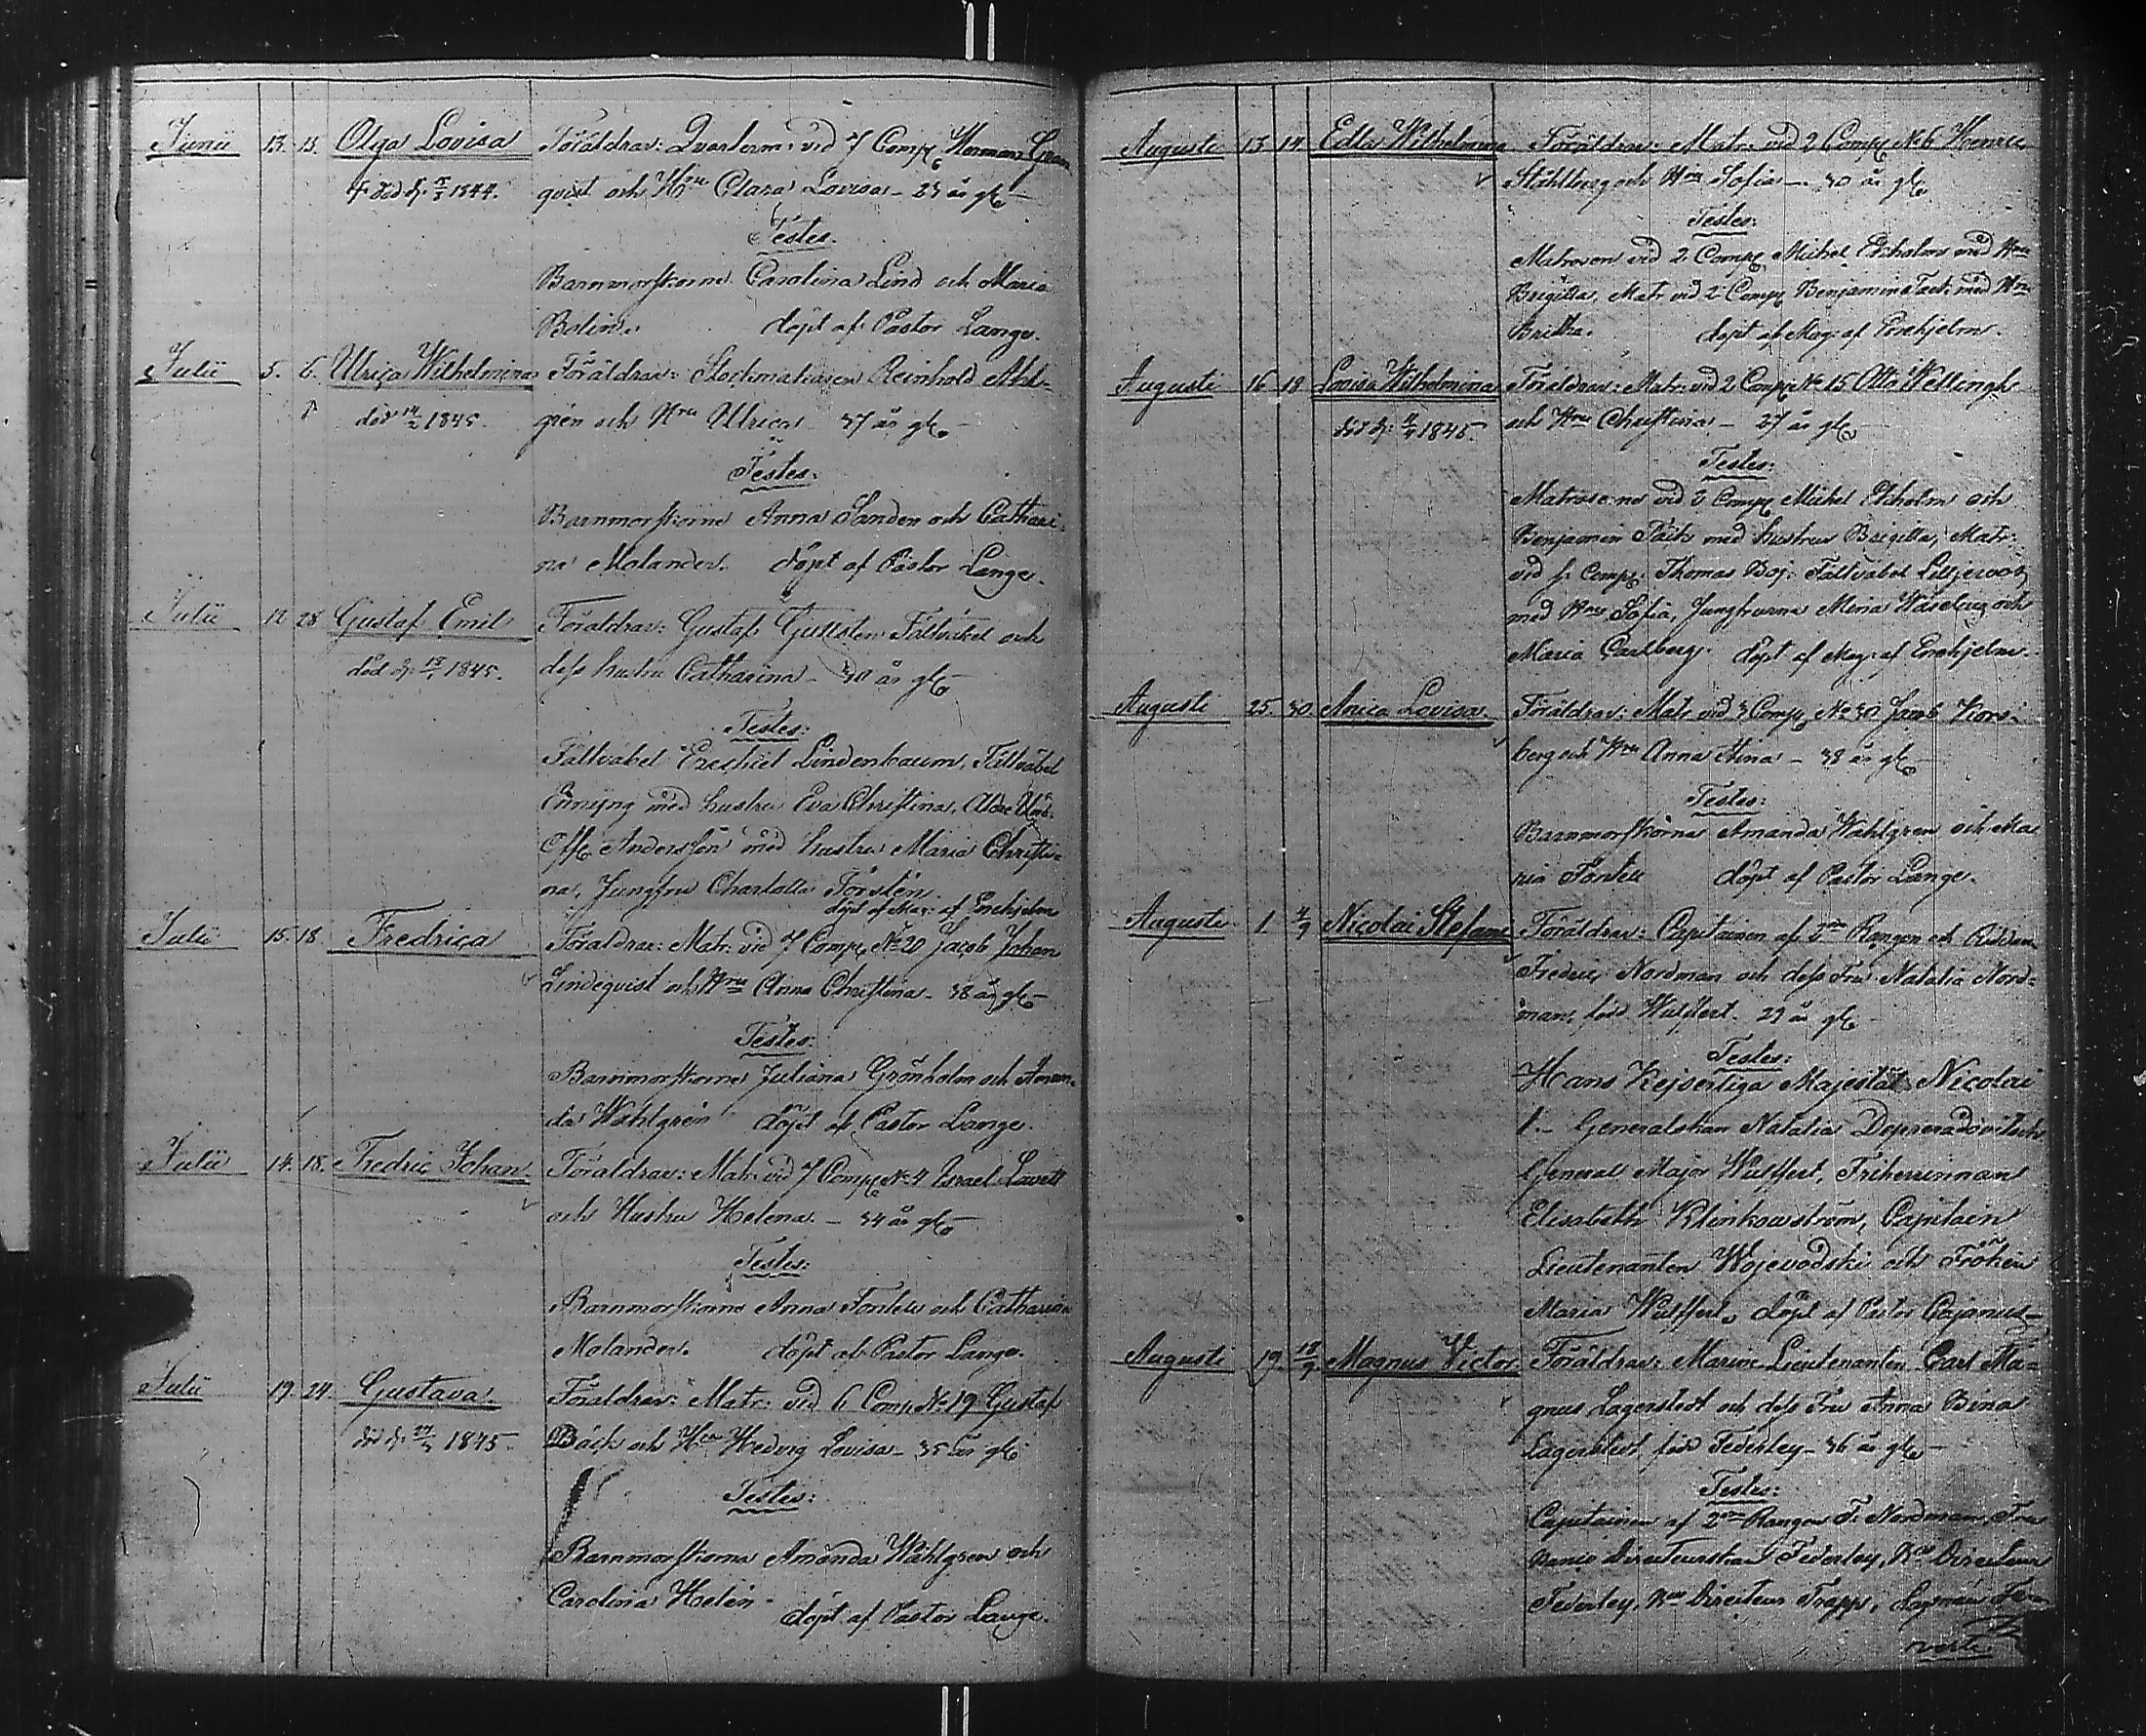 Junii 13. 15. Olga Lovisa Föräldrar: Qvarterm: vid 7 Comp. Herman Gran
† död d. 1844. qvist och Hru Clara Lovisa – 23 år gl.
Testes.
Barnmorskorne Carolina Lind och Maria
Bolin. döpt af Pastor Lange.
Julii 5. 6. Ulrica Wilhelmina Föräldrar: Stockmakaren Reinhold Ahl-
död 14/2 1845. grén och Hru Ulrica – 37 år gl.
Testes:
Barnmorskorne Anna Sanden och Cathari-
na Molander. döpt af Pastor Lange.
Julii 12 28 Gustaf Emil Föräldrar: Gustaf Gullsten Fältväbel och
död d. 1845. dess hustru Catharina – 30 år gl.
Testes:
Fältväbel Ezechiel Lindenbaum, Fältväbel
med hustru Eva Christina, Äldre Und.
Off. Andersson med hustru Maria Christi-
na, Jungfru Charlotta Törstén.
döpt af Mag: af Enehjelm
Julii 15. 18 Fredrica Föräldrar: Matr: vid 7 Comp. No 20 Jacob Johan
Lindeqvist och Hru Anna Christina – 38 år gl.
Testes:
Barnmorskorne Juliana Grönholm och Aman-
da Wahlgrén döpt af Pastor Lange.
Julii 14. 18. Fredric Johan Föräldrar: Matr: vid 7 Comp. No 4 Israel Lavett
och Hustru Helena – 34 år gl.
Testes:
Barnmorskorne Anna Fontell och Catharina
Molander. döpt af Pastor Lange.
Julii 19. 24. Gustava. Föräldrar: Matr: vid 6 Comp. No 19 Gustaf
död d. 1845. Bäck och Hru Hedvig Lovisa – 35 år gl.
Testes:
Barnmorskorna Amanda Wåhlgren och
Carolina Helén –
döpt af Pastor Lange.
Augusti 13 14 Edla Wilhelmina Föräldrar: Matr: vid 2 Comp. No 6 Henric
Ståhlberg och Hru Sofia – 30 år gl.
Testes:
Matrosen vid 2 Comp. Mickel Ekholm med Hru
Brigitta, Matr. vid 2 Comp. Benjamin Täck med Hru
Britha. döpt af Mag: af Enehjelm.
Augusti 16 18 Lovisa Wilhelmina Föräldrar: Matr: vid 2 Comp. No 15 Otto Wellingh
död d. 1845. och Hru Christina – 27 år gl.
Testes:
Matroserne vid 2 Comp. Mickel Ekholm och
Benjamin Täck med hustru Brigitta, Matr:
vid Comp. Thomas Boj. Fältväbel Lilljeroos
med Hru Sofia, Jungfrurna Mina och
Maria Carlberg. döpt af Mag: af Enehjelm.
Augusti 25. 30. Anica Lovisa Föräldrar: Matr vid 3 Comp. No 30 Jacob Kors-
berg och Hru Anna Stina – 38 år gl.
Testes:
Barnmorskorna Amanda Wahlgren och Ma
ria Fontell döpt af Pastor Lange.
Augusti 1. 4/9 Nicolai Stefani Föräldrar: Capitainen af 2dra Rangen och Riddaren
Fredric Nordman och dess Fru Natalia Nord-
man, född Wulffert. 29 år gl.
Testes:
Hans Kejserliga Majestät Nicolai
1. – Generalskan Natalia Depreradovitsch
General Major Wulffert, Friherrinnan
Elisabeth Klinkowström, Capitain
Lieutenanten Wojevodski och Fröken
Maria Wulffert, döpt af Pastor Cajanus
Augusti 19. 18/9 Magnus Victor Föräldrar: Marine Lieutenanten Carl Ma-
gnus Lagerstedt och dess Fru Anna Bina
Lagerstedt född Federley – 36 år gl.
Testes:
Capitainen af 2dra Rangen F. Nordman, Fru
Banco Directeurskan Federley, Directeur
Federley, Directeur Trapp, Lagman
verte.